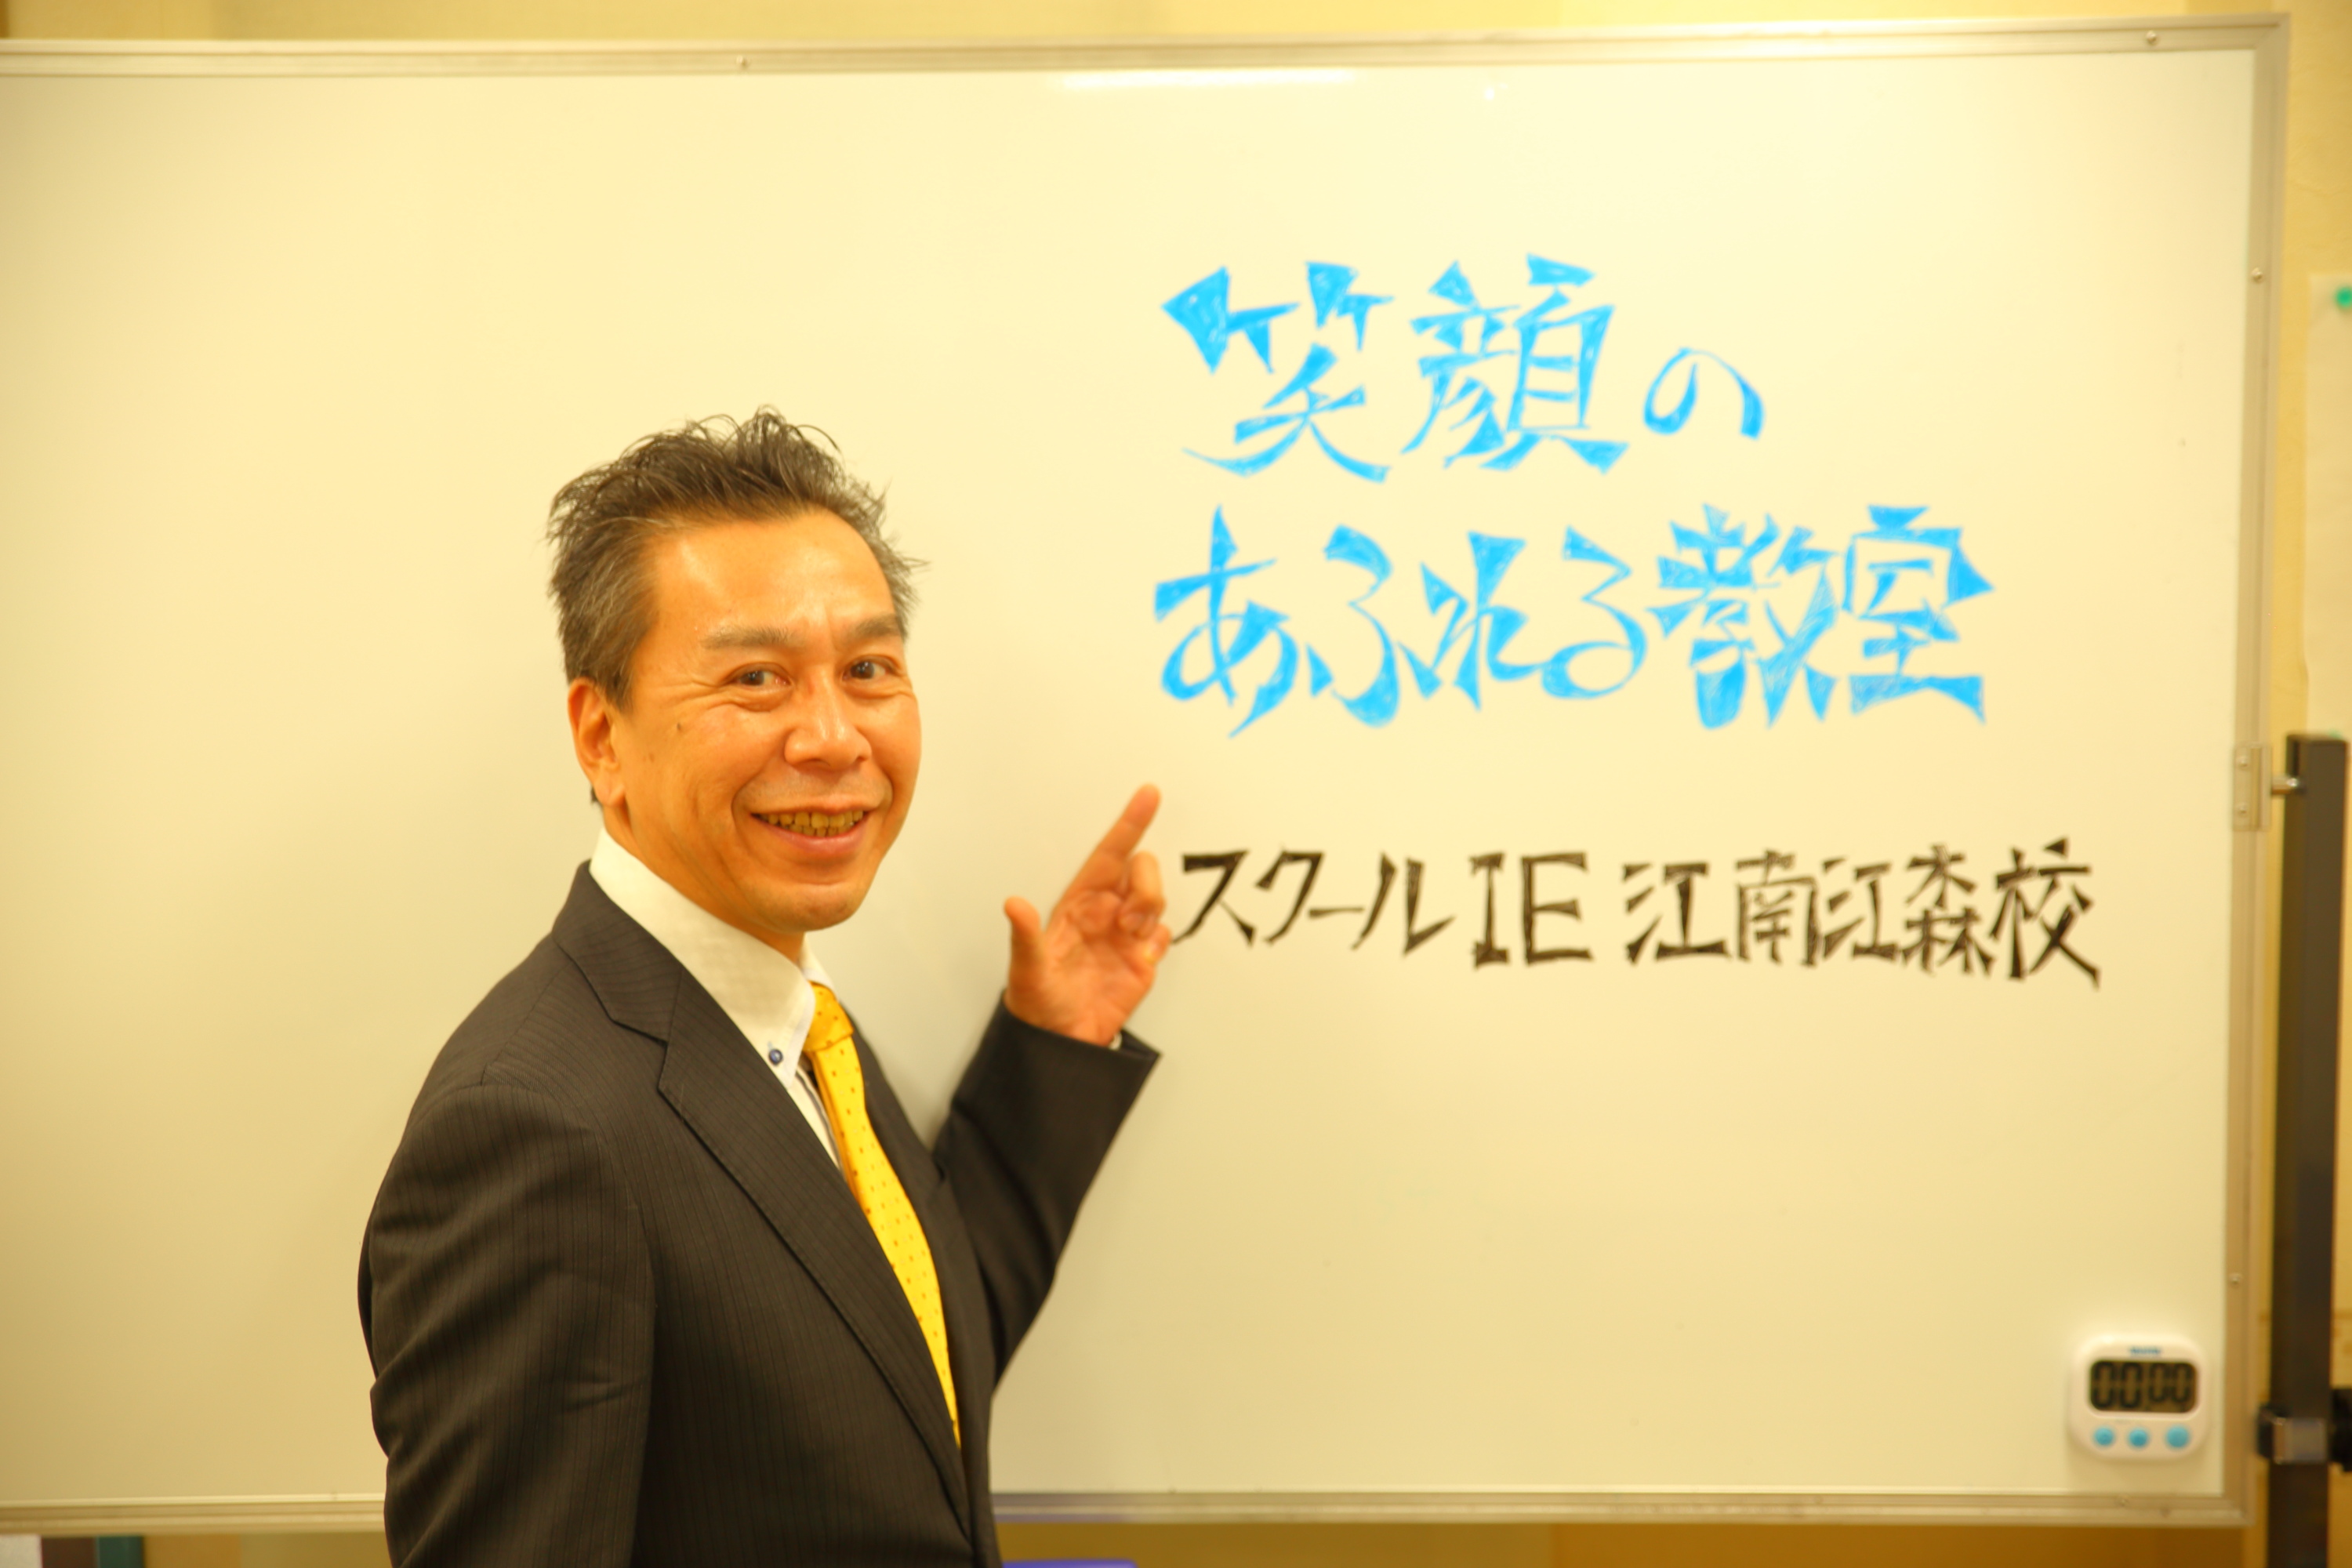 笑顔の
あふれる教室
スクールIE 江南江森校
00:00